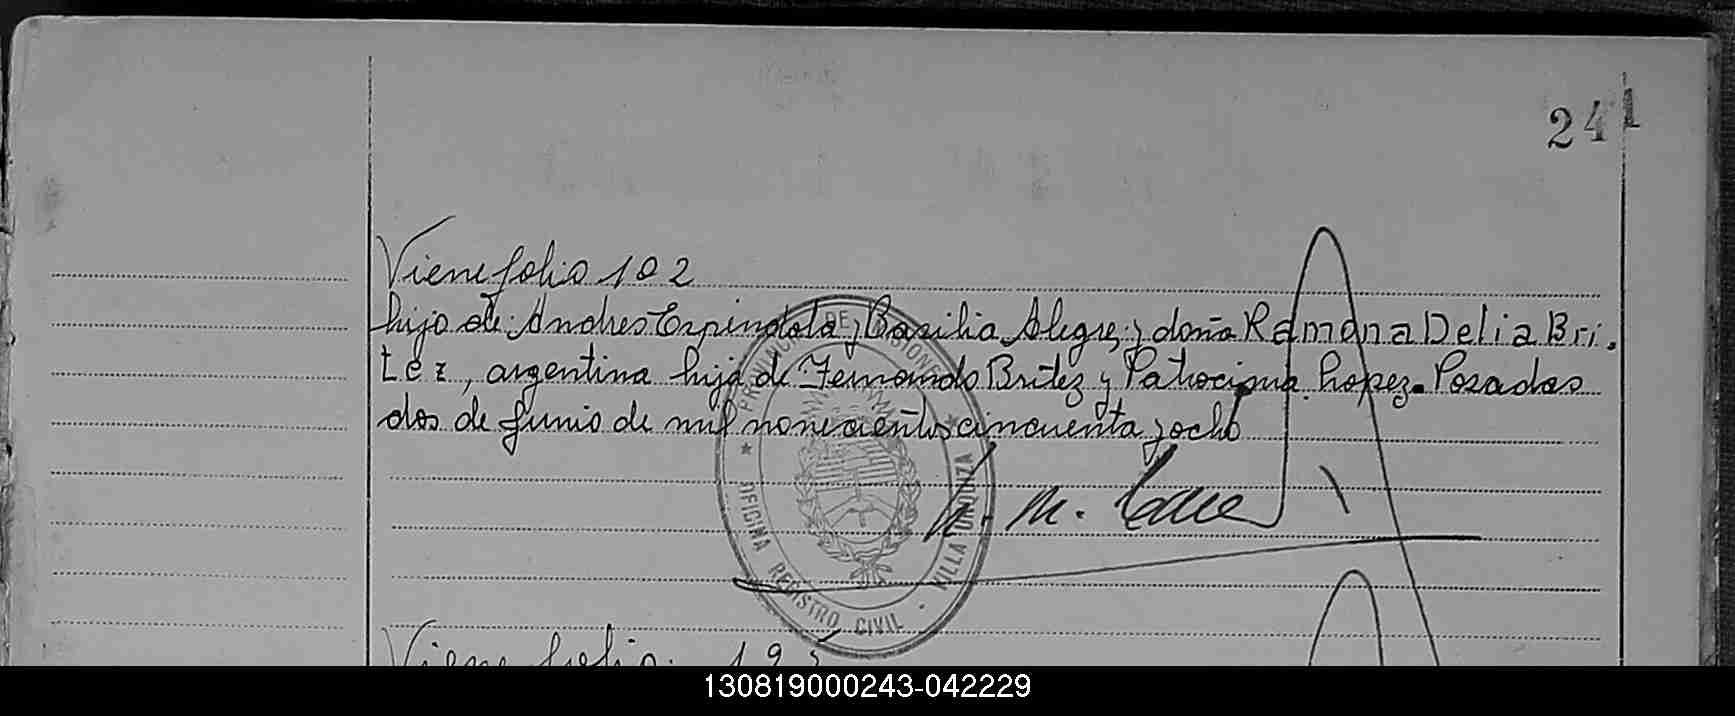 241
Viene folio 102
hijo de Andres Espindola y Basilia Alegre; y doña Ramona Delia Bri.
tez, argentina hija de Fernando Britez y Patrocinia Lopez. Posadas
dos de Junio de mil novecientos cincuenta y ocho
PROVINCIA DE MISIONES
OFICINA REGISTRO CIVIL · VILLA URQUIZA
Viene folio
130819000243-042229